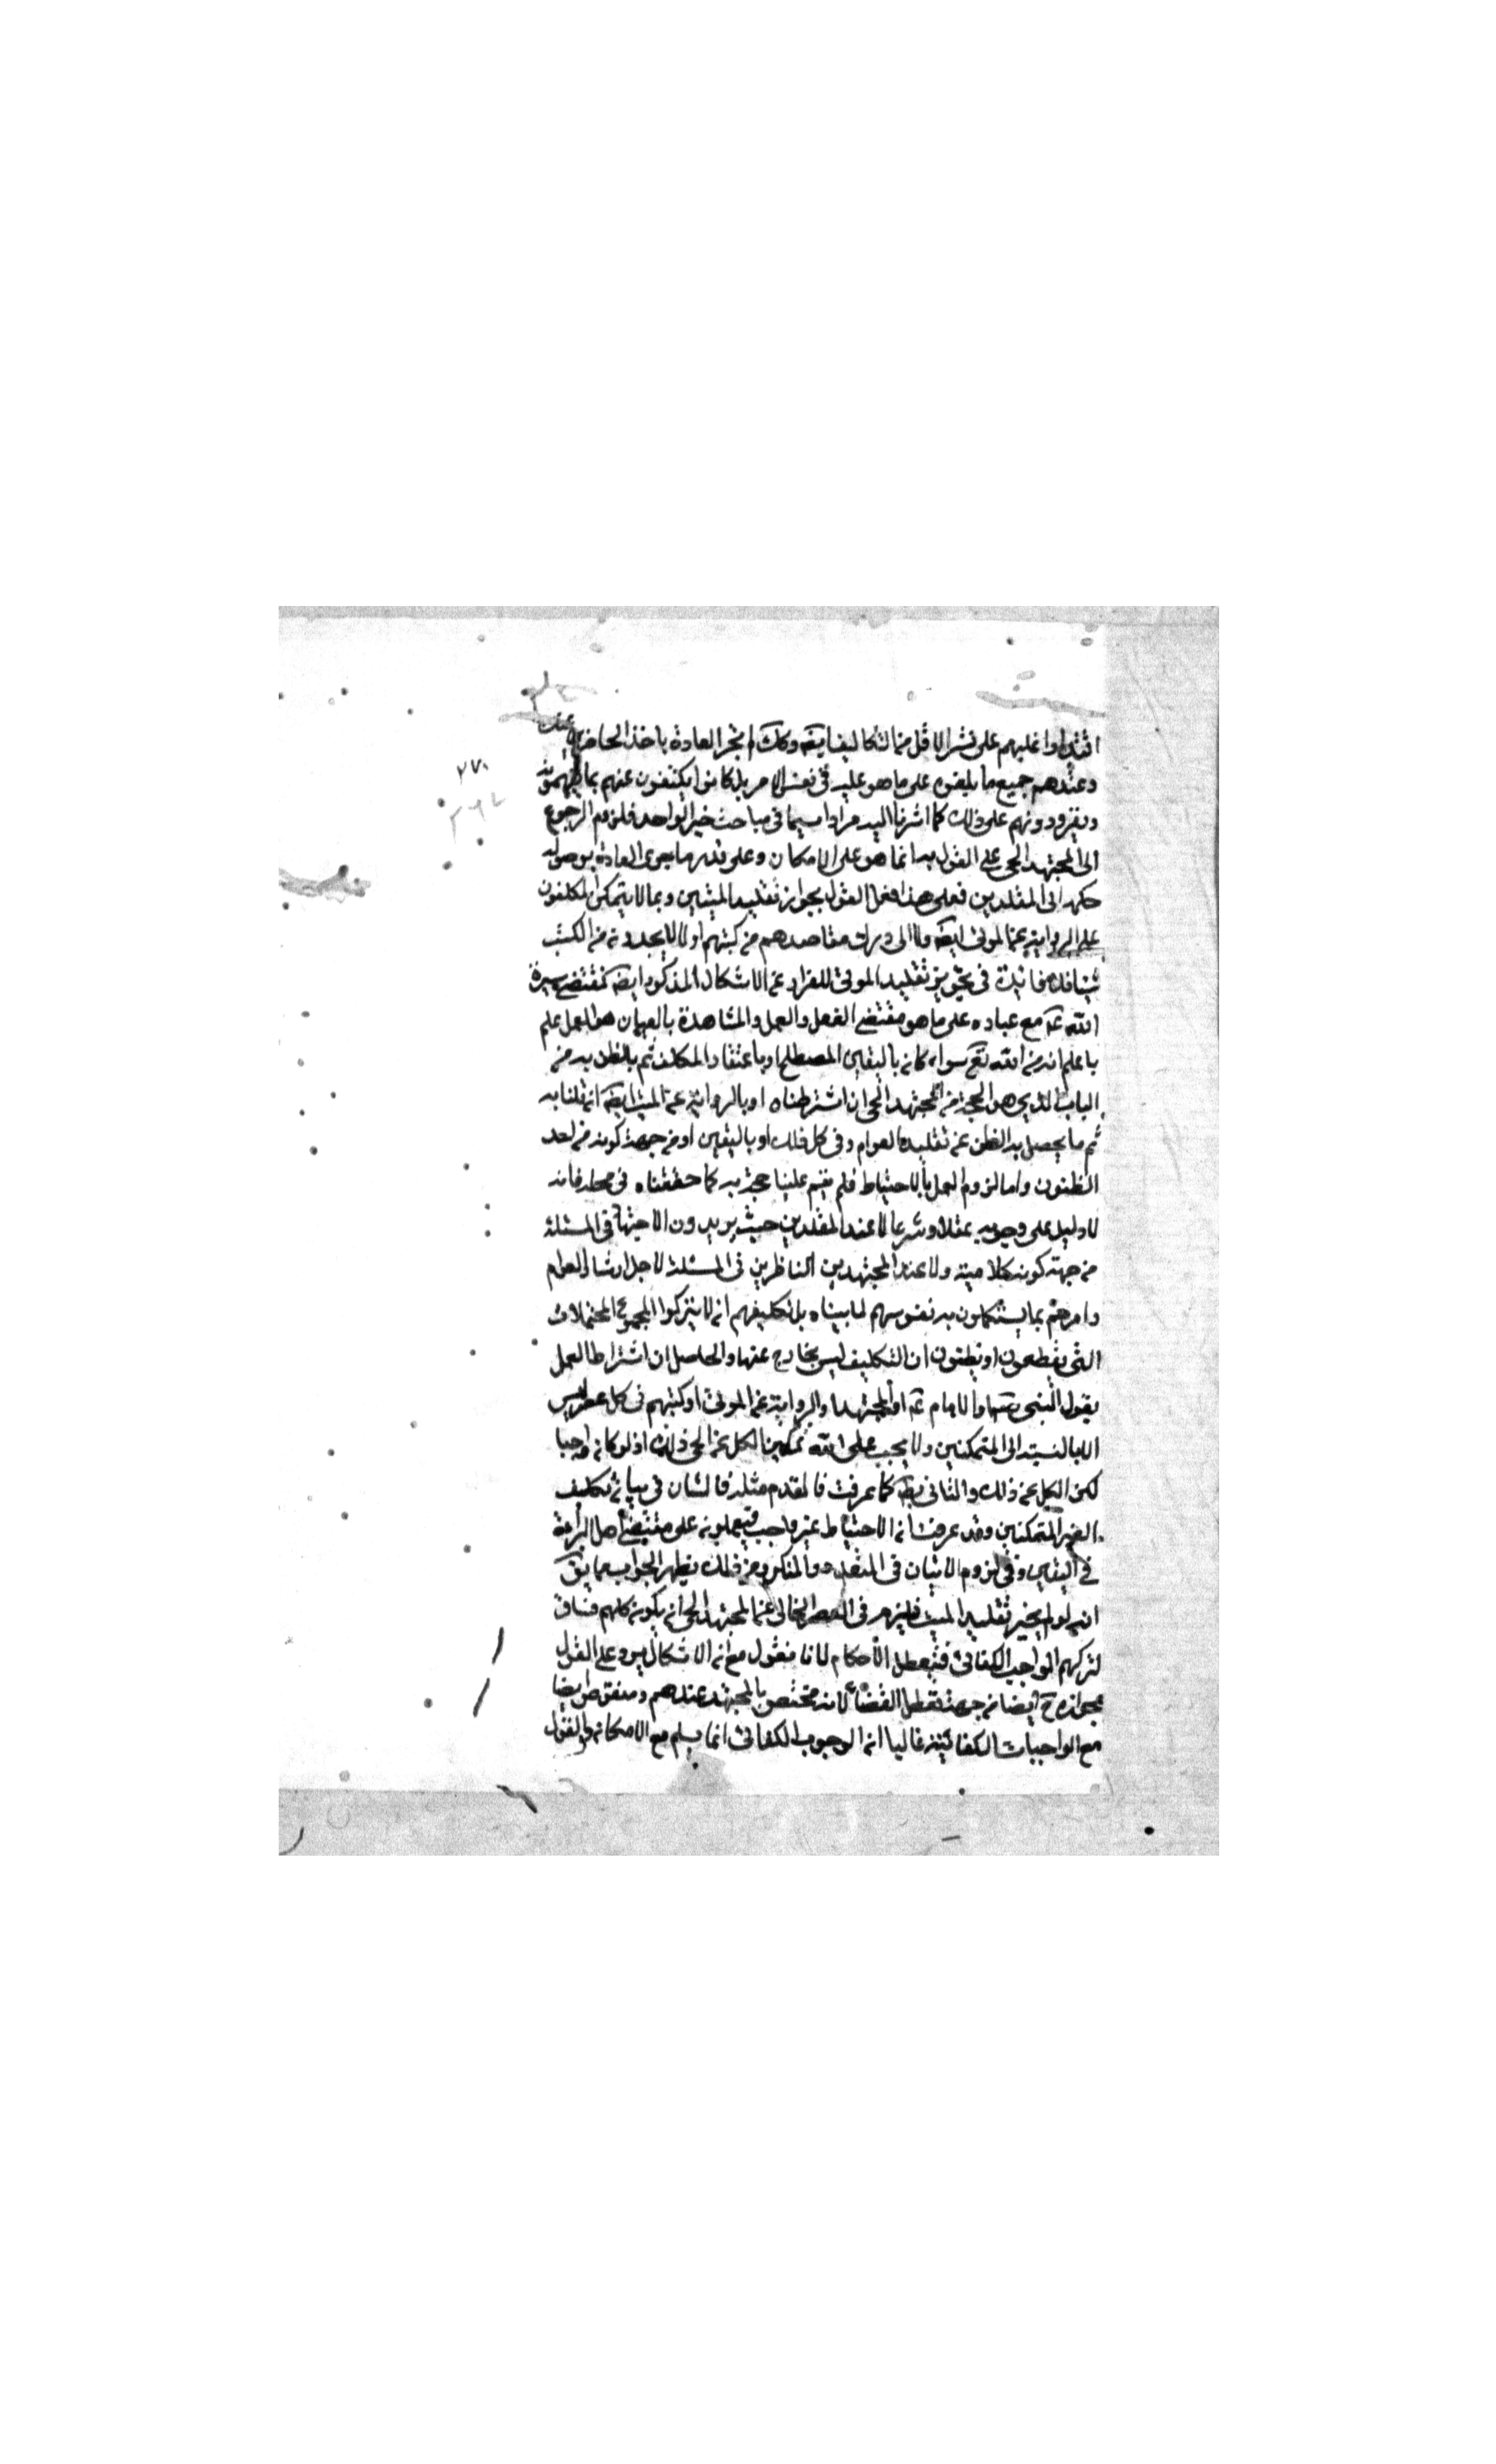 اقتدروا غلبهم على نشر الاقل من التكاليف ايضا وكك لم تجر العادة باخذ الحاضرين عنهم
وعندهم جميع ما يلقوه على ما هو عليه فى نفس الامر بل كانوا يكتفون عنهم بما يفهمونه
ويقررونهم على ذلك كما اشرنا اليه مرارا سيما فى مباحث خبر الواحد فلزوم الرجوع
الى المجتهد الحى على القول به انما هو على الامكان وعلى قدر ما يجرى العادة بوصوله
حكمه الى المقلدين فعلى هذا فعل القول بجواز تقليد الميتين ربما لا يتمكن المكلفون
على الرواية عن الموتى ايضا ولا الى درك مقاصدهم من كتبهم او لا يجدونه من الكتب
شيئا فلا فائدة فى تجويز تقليد الموتى للفرار عن الاشكال المذكور ايضا كمقتضى سيرة
الله تع مع عباده على ما هو مقتضى الفعل والعمل والمشاهدة بالعيان هو العمل على
ما علم انه من الله تع سواء كان باليقين المصطلح او باعتقاد المكلف ثم بالظن به من
الباب الذى هو الحجة من المجتهد الحى ان اشترطناه او بالرواية عن الميت ايضا ان قلنا به
ثم ما يحصل به الظن عن تقليد العوام وفى كل ذلك او باليقين او من جهة كونه من احد
الظنون واما لزوم العمل بالاحتياط فلم يقم علينا حجة به كما حققناه فى محله فانه
لا دليل على وجوبه عقلا وشرعا لا عند المقلدين حيث يريدون الاجتهاد فى المسئلة
من جهة كونه كلامية ولا عند المجتهدين الناظرين فى المسئلة لاجل ارشاد العوام
وامرهم بما يستكملون به نفوسهم لما بيناه بل تكليفهم ان لا يتركوا المجموع المحتملات
التى يقطعون او يظنون ان التكليف ليس بخارج عنها والحاصل ان اشتراط العمل
بقول النبى ص والامام ع او المجتهد او الرواية عن الموتى او كتبهم فى كل عصر ليس
الا بالنسبة الى المتمكنين ولا يجب على الله تمكين الكل عن الحى ذلك اذ لو كان واجبا
لكن الكل عن ذلك والتانى بط كما عرفت فالمقدم مثله فالشان فى بيان تكليف
الغير المتمكنين وقد عرفت ان الاحتياط غير واجب فيعملون على مقتضى اصل البرائة
فى اليقين وفى لزوم الاتيان فى المتعدد والمنكر ومن ذلك يظهر الجواب عما يق
انه لو لم يجز تقليد الميت فليزم فى العصر الخالى عن المجتهد الحى ان يكون كلهم فساق
لتركهم الواجب الكفائى فتبعطل الاحكام لانا نقول مع ان الاشكال يرد على القول
بجوازه ح ايضا من جهة تعطل القضاء لانه مختص بالمجتهد عندهم ومنقوض ايضا
مع الواجبات الكفائية غالبا ان الوجوب الكفائى انما يسلم مع الامكان والقول
٢٧٠